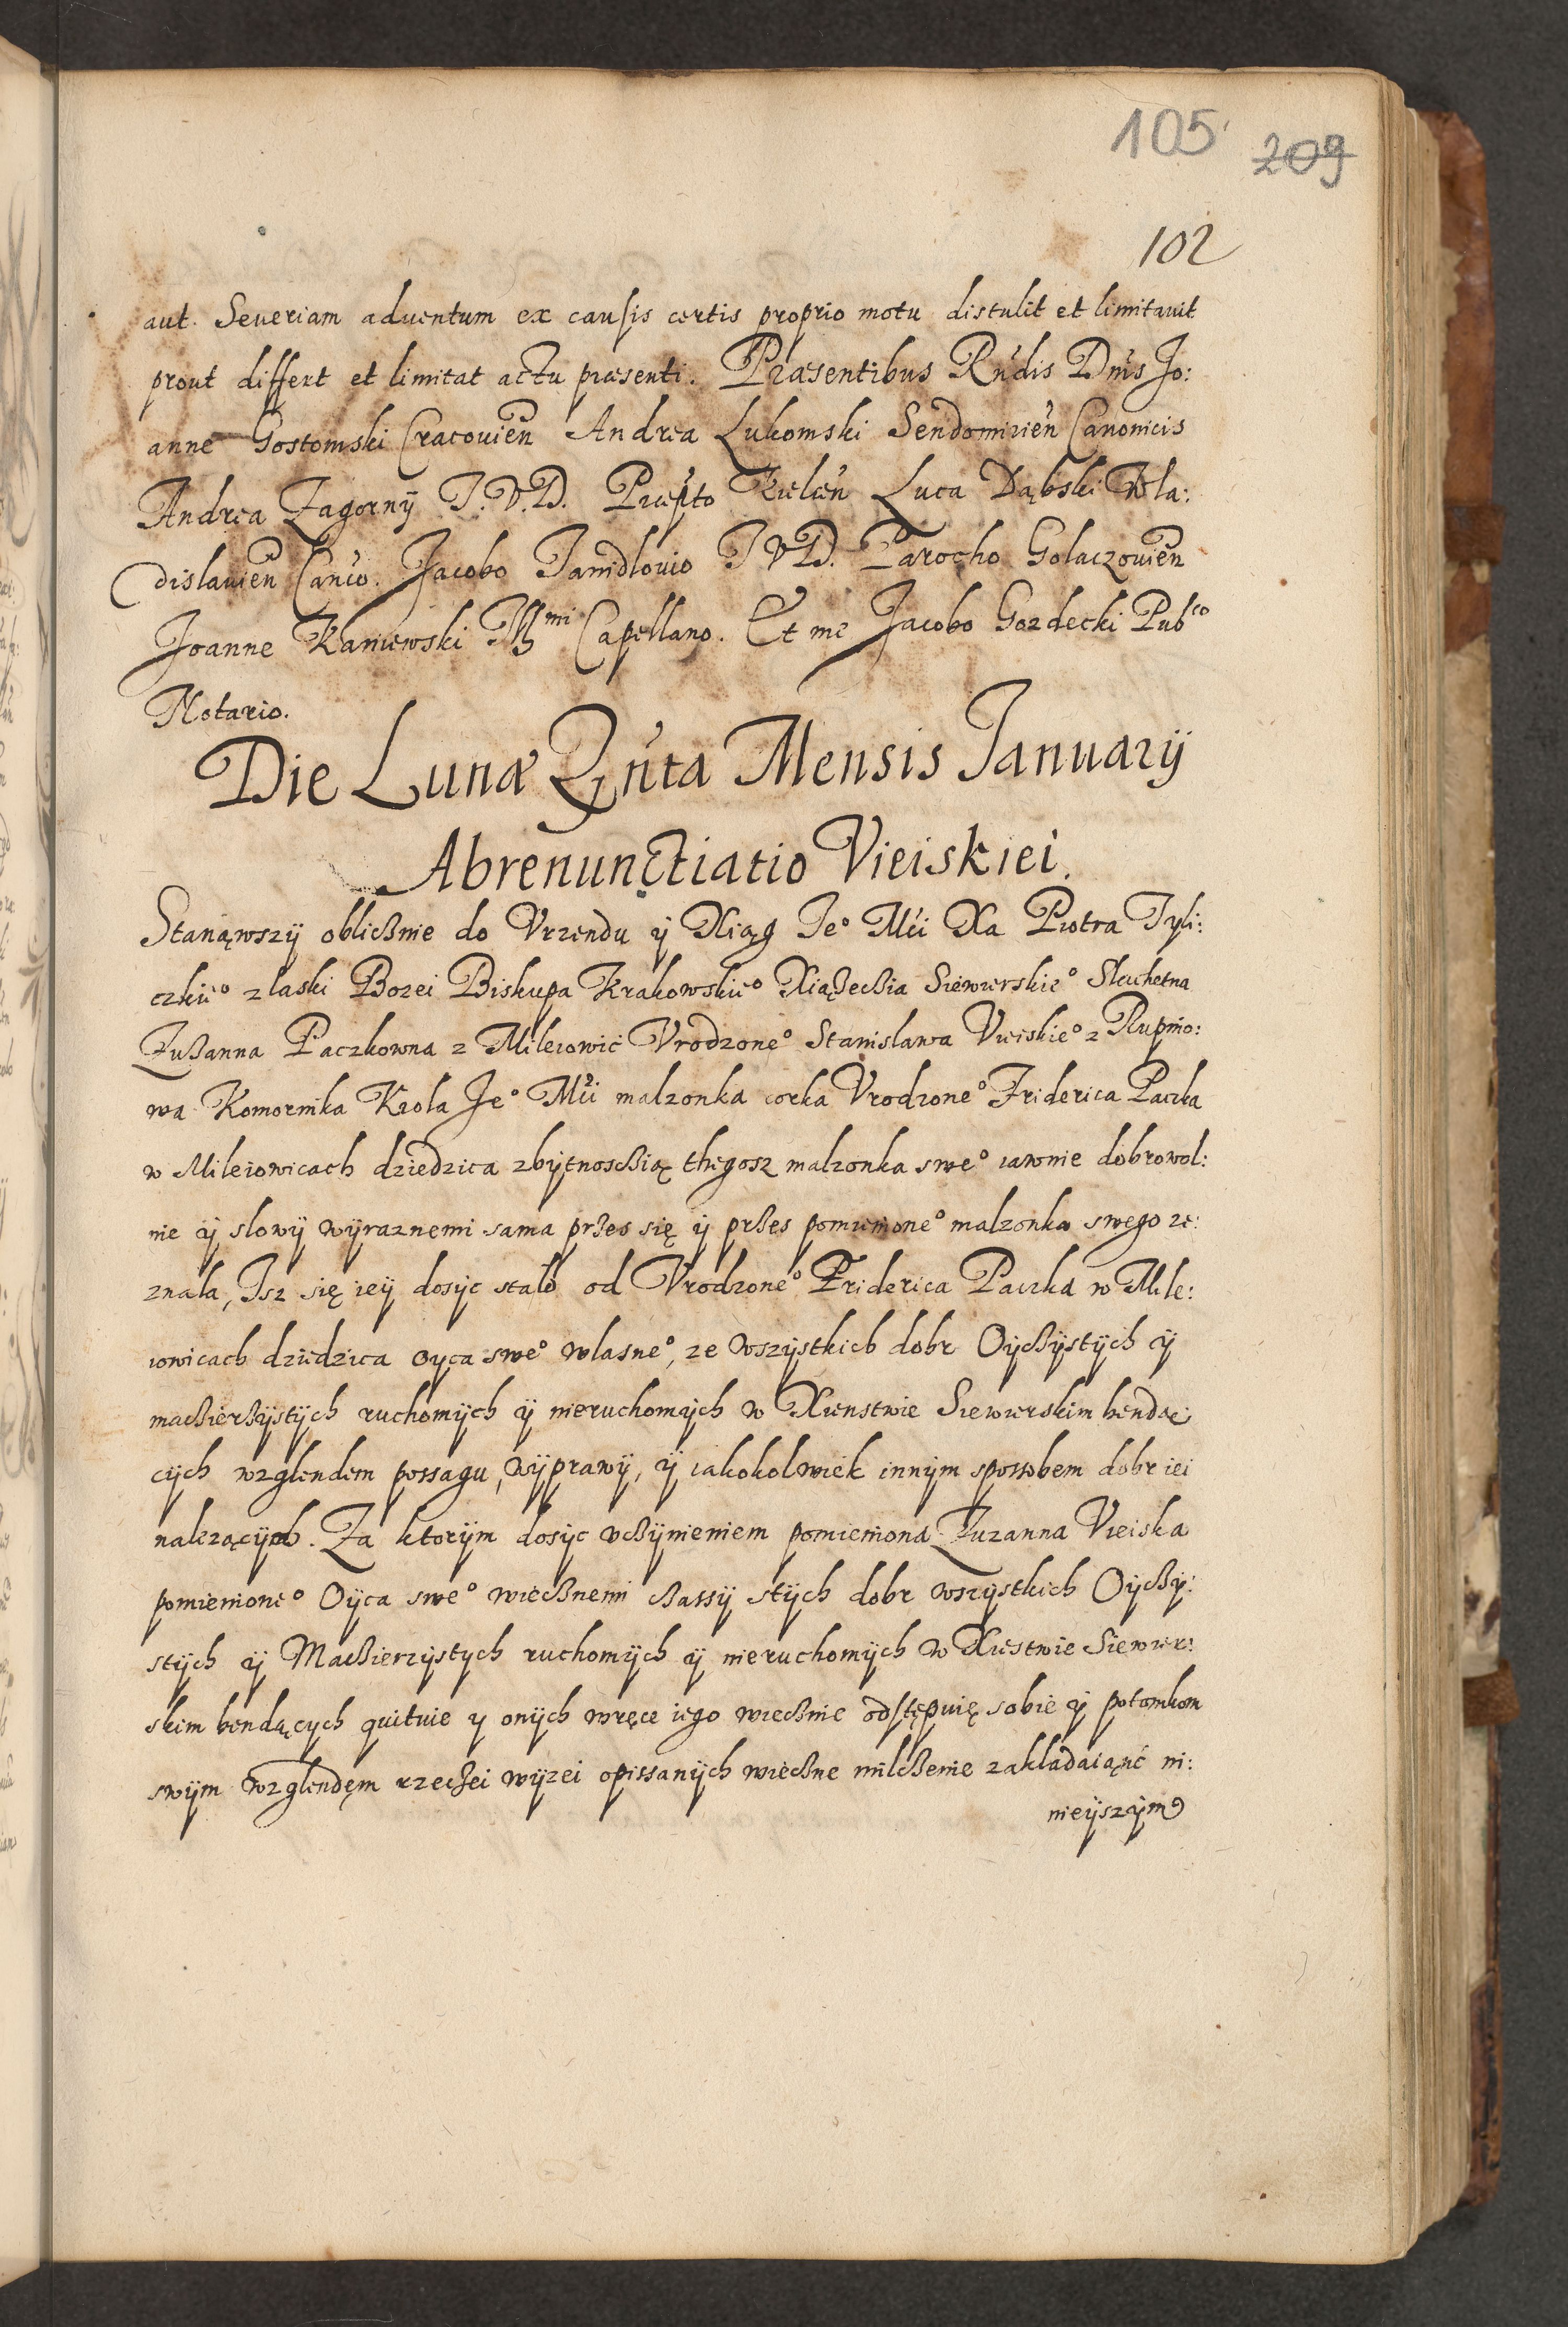 105 209
102
aut. Seueriam aduentum ex causis certis proprio motu distulit et limitauit
prout differt et limitat actu præsenti. Præsentibus Rńdis Dńis Jo:
anne Gostomski Cracouien̄ Andrea Lukomski Sendomirień Canonicis
Andrea Zagornÿ I.V.D. Præpto Kielceń Luca Dąbski Wla:
dislauień Cańco. Jacobo Janidlouio I V D. Parocho Golaczouień
Joanne Kaniewski Illmi Capellano. Et me Jacobo Gozdecki Pubco
Notario.
Die Lunæ Qńta Mensis Januarÿ
Abrenunctiatio Vieiskiei.
Stanąwszÿ oblicßnie do Vrzendu ÿ Xiąg Je° Mći Xa Piotra Tyli:
czkie° z laski Bozei Biskupa Krakowskie° Xiąßecßia Siewierskie° Slachetna
Zußanna Paczkowna z Mileiowic Vrodzone° Stanislawa Vieiskie° z Rupnio:
wa Komornika Krola Je° Mći malzonka corka Vrodzone° Friderica Paczka
w Mileiowicach dziedzica zbÿtnoscßią thegosz malzonka swe° iawnie dobrowol:
nie ÿ slowÿ wÿraznemi sama przes się ÿ przes pomienione° malzonka swego ze:
znala, Isz się ieÿ dosÿc stalo od Vrodzone° Friderica Paczka w Mile:
iowicach dziedzica oyca swe° wlasne°, ze wszÿstkich dobr Oÿcßÿstÿch ÿ
macßierßÿstÿch ruchomÿch ÿ nieruchomÿch w Xienstwie Siewierskim bendąc
cÿch wzglendem possagu, wÿprawÿ, ÿ iakokolwiek innÿm sposobem dobr iei
nalezącÿch. Za ktorÿm dosÿc vcßÿnieniem pomieniona Zuzanna Vieiska
pomienione° Oÿca swe° wiecßnemi cßassÿ z tÿch dobr wszÿstkich Oÿcßÿ:
stÿch ÿ Macßierzÿstych ruchomÿch ÿ nieruchomÿch w Xiestwie Siewier:
skim bendących quituie y onÿch wręce iego wiecßnie odstępuię sobie ÿ potomkom
swÿm wzglendęm rzecßei wÿzei opissanÿch wiecßne milcßenie zakladaiąnc ni:
nieÿszÿm